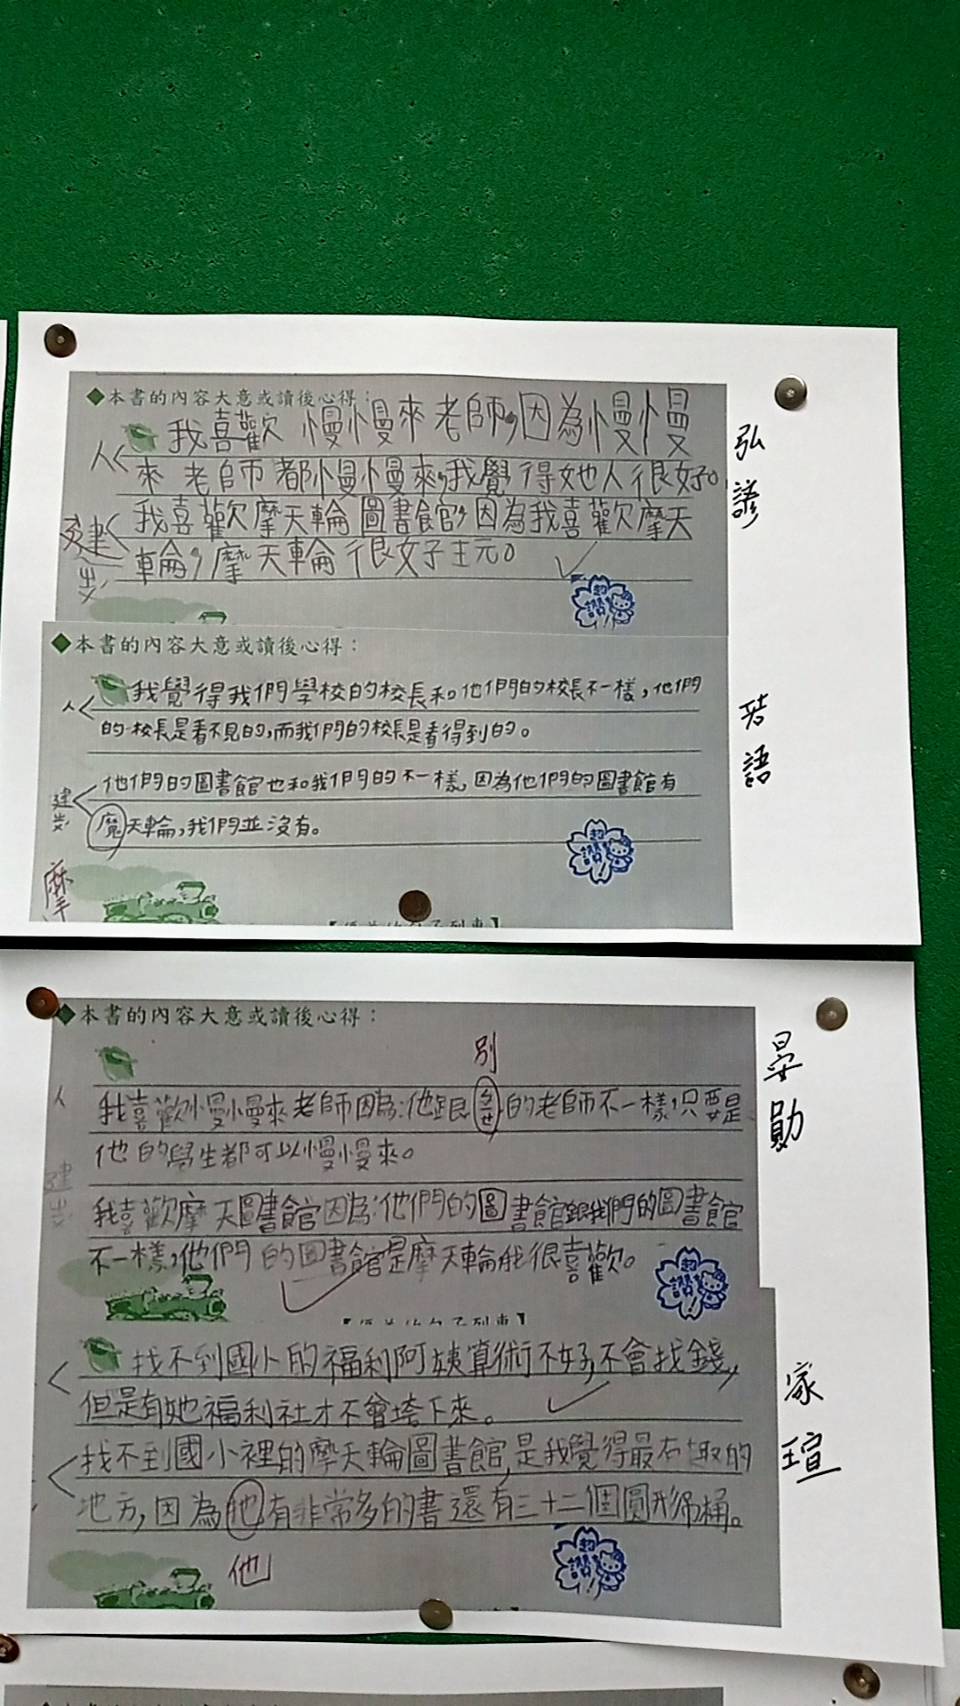 ◆本書的內容大意或讀後心得：
我喜歡 慢慢來老師，因為慢慢
人
來 老師都慢慢來，我覺得她人很好。
我喜歡摩天輪圖書館，因為我喜歡摩天
建
輪，摩天輪很好玩。
弘
諺
超讚！
◆本書的內容大意或讀後心得：
我覺得我們學校的校長和他們的校長不一樣，他們
人
的校長是看不見的，而我們的校長是看得到的。
他們的圖書館也和我們的不一樣，因為他們的圖書館有
建
魔天輪，我們並沒有。
摩
語
超讚！
◆本書的內容大意或讀後心得：
別
人
我喜歡慢慢來老師因為：他跟ㄅㄝˊ的老師不一樣，只要是
他的學生都可以慢慢來。
建
我喜歡摩天圖書館因為：他們的圖書館跟我們的圖書館
不一樣，他們的圖書館是摩天輪我很喜歡。
晏
勛
超讚！
找不到國小的福利阿姨算術不好，不會找錢，
但是有她福利社才不會垮下來。
找不到國小裡的摩天輪圖書館，是我覺得最有趣的
地方，因為他有非常多的書還有三十二個圓形吊桶。
他
家
瑄
超讚！